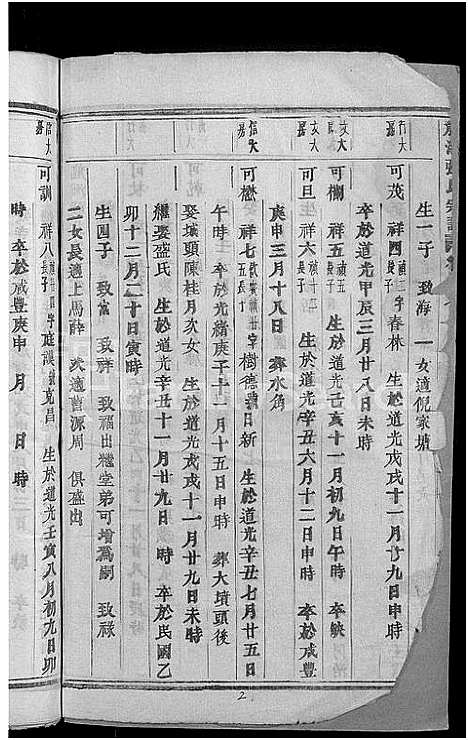 生一子 致海 一女適倪家塘
行大 可茂 祥四長子 禎二 字春林 生於道光戊戌十一月廿九日申時
卒於道光甲辰三月廿八日未時
文大 可欄 祥五長子 禎五 生於道光己亥十一月初九日午時 卒缺
文大 可旦 祥六長子 禎十二 生於道光辛丑六月十二日申時 卒於咸豐
庚申三月十八日 葬水角
信大 可橪 祥七長子 字樹德號日新 生於道光辛丑七月廿五日
午時 卒於光緒庚子十二月十五日申時 葬大墳頭後
娶城頭陳桂月次女 生於道光戊戌十一月廿九日未時
繼娶盛氏 生於道光辛丑十一月廿九日 時 卒於民國乙
卯十二月二十日寅時
生四子 致富 致祥 致福出繼堂弟可增為嗣 致祿
二女長適上馬 次適舊源周 俱盛出
信大 可訓 祥八長子 字庭謨號克昌 生於道光壬寅八月初九日卯
時 卒於咸豐庚申 月 日 時
2